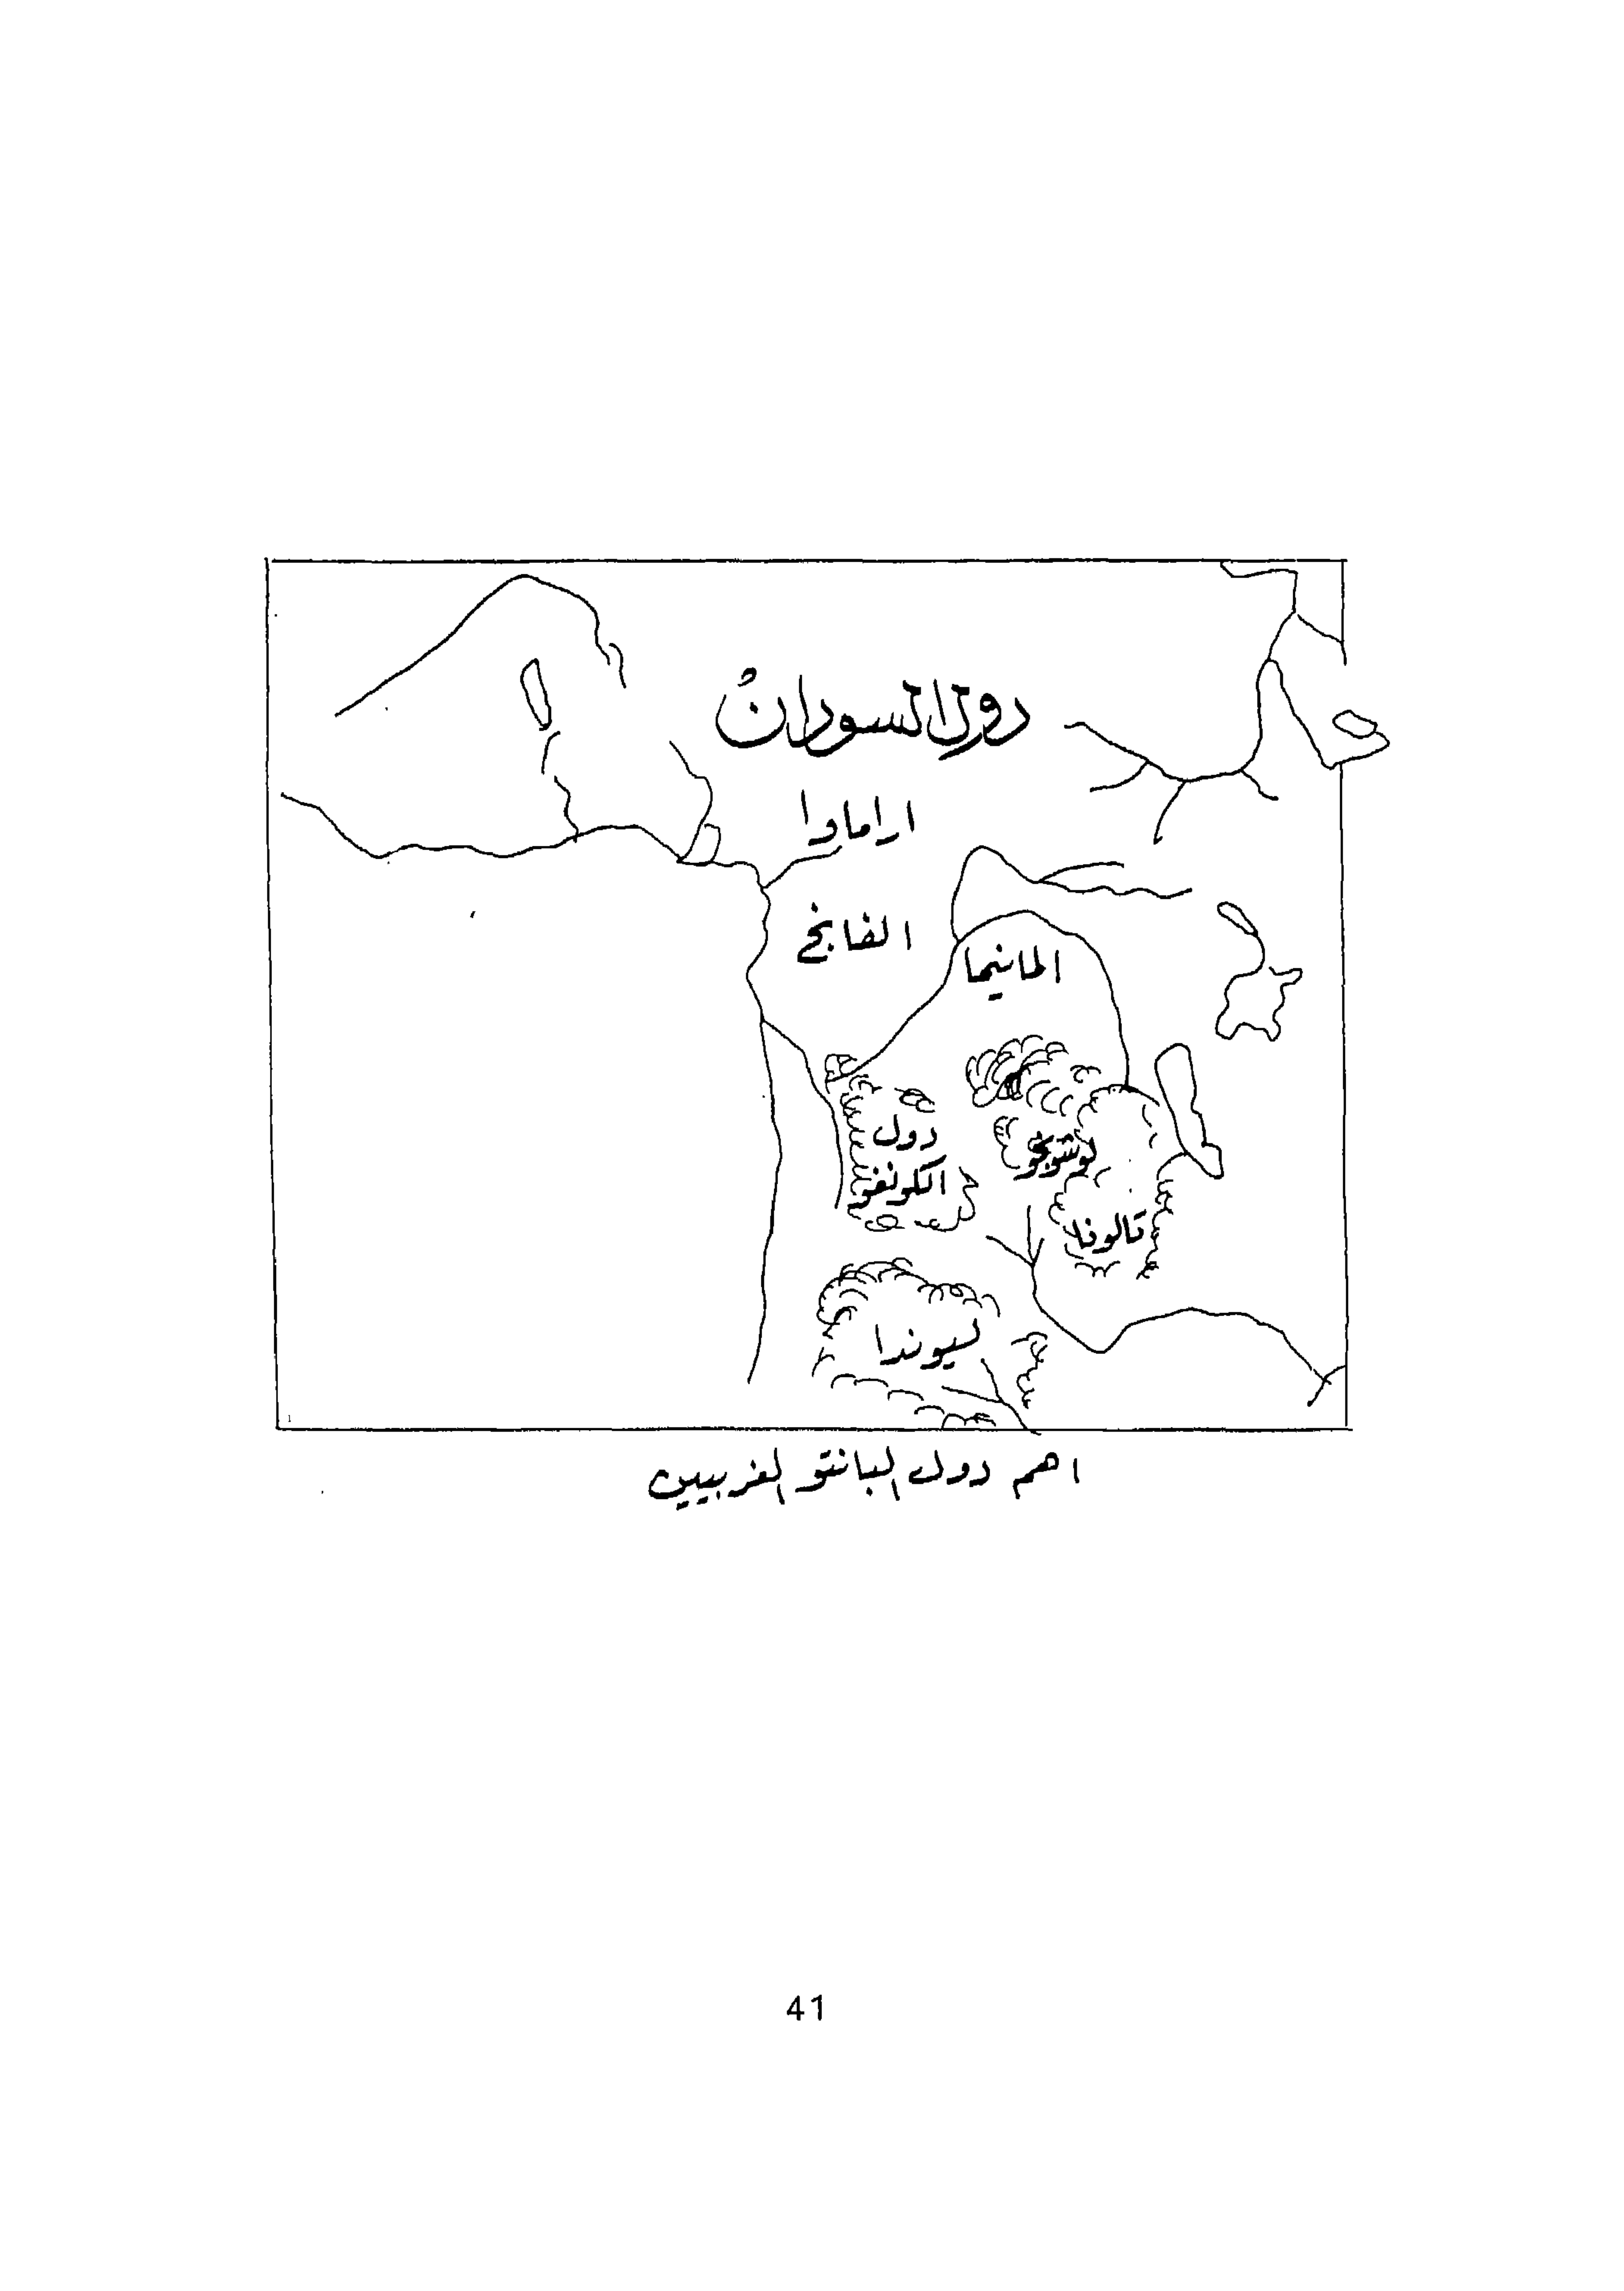 دول السودان
ارامادا
الفانخ
المانيما
دول
الكونغو
لوشونجو
قالوندا
ليوندا
اهم دول البانتو الغربيين
41